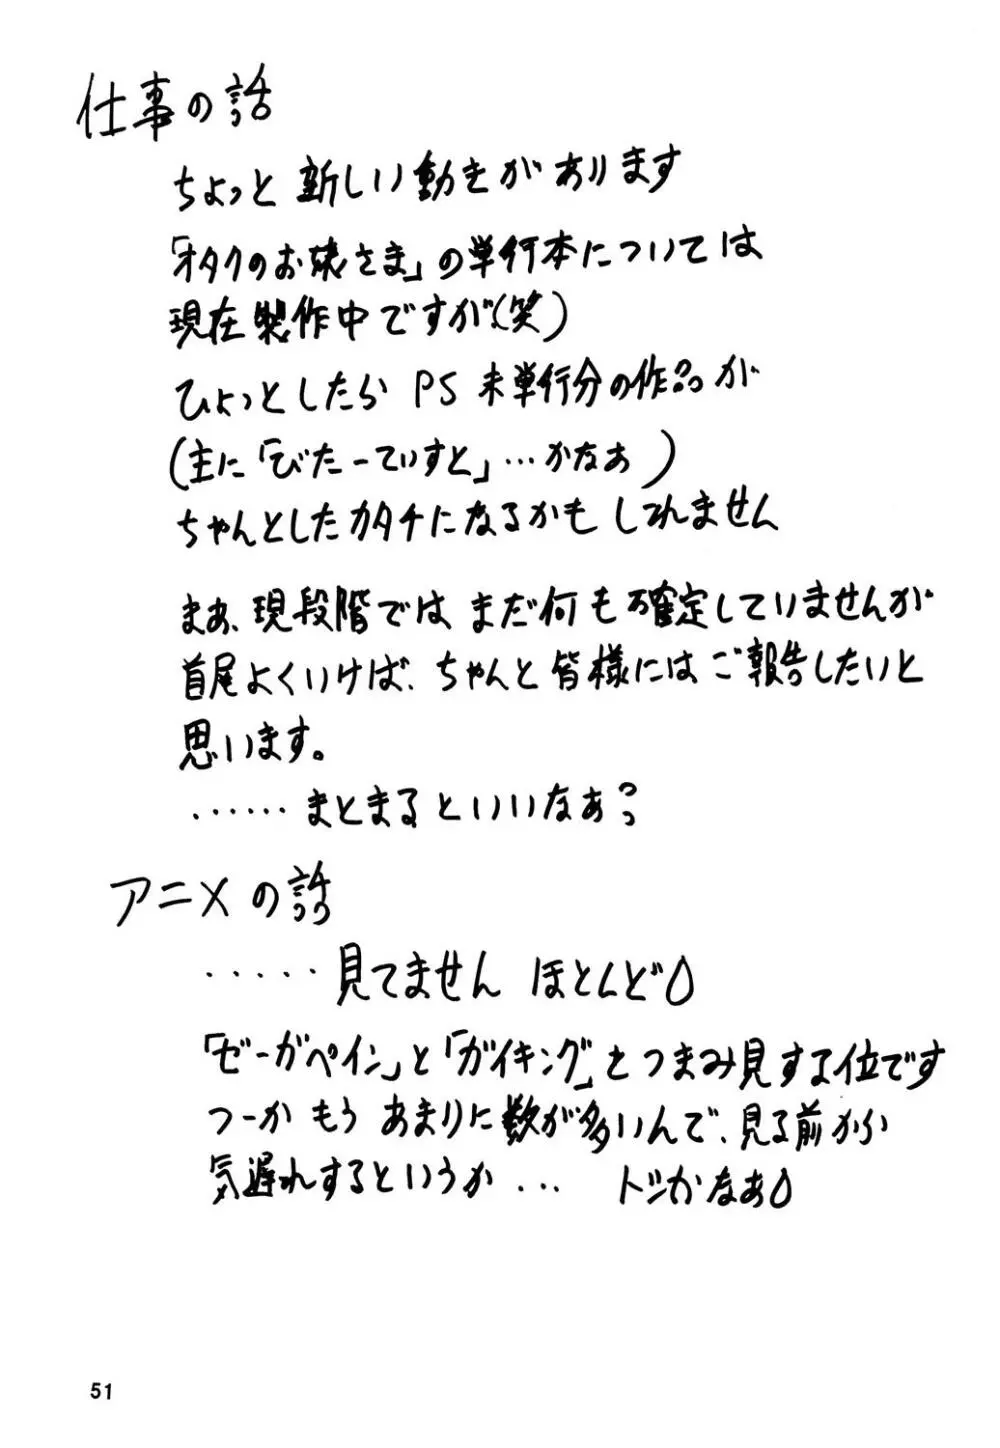 仕事の話
ちょっと 新しい動きがあります
「オタクのお嬢さま」の単行本については
現在製作中ですが(笑)
ひょっとしたら PS 未単行分の作品が
(主に「びたーていすと」…かなぁ)
ちゃんとしたカタチになるかもしれません
まぁ、現段階では まだ何も確定していませんが
首尾よくいけば、ちゃんと皆様にはご報告したいと
思います。
……まとまるといいなぁ?
アニメの話
‥‥‥見てません ほとんど
「ゼーガペイン」と「ガイキング」をつまみ見する位です
つーか もう あまりに数が多いんで、見る前から
気遅れするというか… かなぁ
51